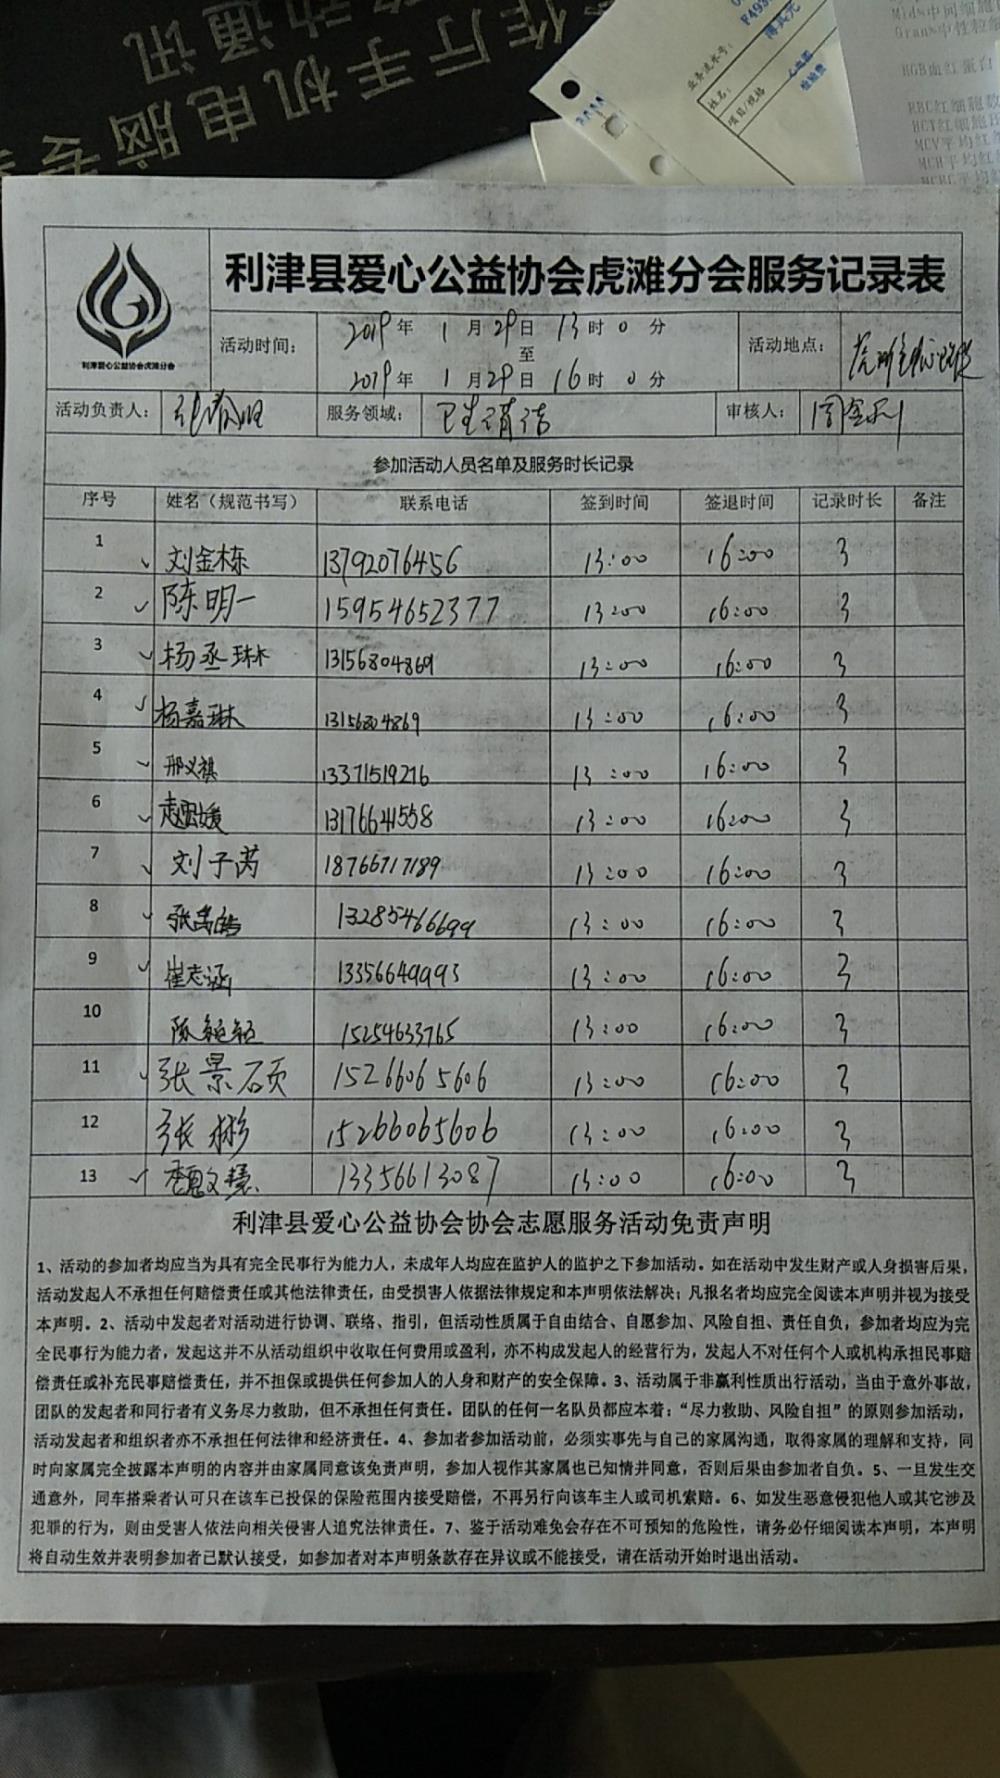 作厅手机电脑专
动通讯
P499
业务流水号：
姓名：
项目/规格
心电图
检验费
Mid%中间细胞
Gran%中性粒
HGB血红蛋白
RBC红细胞数
HCT红细胞压
MCV平均红
MCH平均红
MCHC平均
利津县爱心公益协会虎滩分会服务记录表
利津爱心公益协会虎滩分会
活动时间：
2019年 1月29日 13时0分
至
2019年 1月29日 16时0分
活动地点：
活动负责人：
服务领域： 卫生清洁
审核人： 周金利
参加活动人员名单及服务时长记录
序号 姓名（规范书写） 联系电话 签到时间 签退时间 记录时长 备注
1 刘金栋 13792076456 13:00 16:00 3
2 陈明一 15954652377 13:00 16:00 3
3 杨丞琳 13156804869 13:00 16:00 3
4 杨嘉琳 13156804869 13:00 16:00 3
5 邢义祺 13371519216 13:00 16:00 3
6 13176641558 13:00 16:00 3
7 刘子芮 18766717189 13:00 16:00 3
8 13285466699 13:00 16:00 3
9 崔志涵 13356649993 13:00 16:00 3
10 15254633765 13:00 16:00 3
11 张景硕 15266065606 13:00 16:00 3
12 张彬 15266065606 13:00 16:00 3
13 13356613087 13:00 16:00 3
利津县爱心公益协会协会志愿服务活动免责声明
1、活动的参加者均应当为具有完全民事行为能力人，未成年人均应在监护人的监护之下参加活动。如在活动中发生财产或人身损害后果，
活动发起人不承担任何赔偿责任或其他法律责任，由受损害人依据法律规定和本声明依法解决；凡报名者均应完全阅读本声明并视为接受
本声明。2、活动中发起者对活动进行协调、联络、指引，但活动性质属于自由结合、自愿参加、风险自担、责任自负，参加者均应为完
全民事行为能力者，发起这并不从活动组织中收取任何费用或盈利，亦不构成发起人的经营行为，发起人不对任何个人或机构承担民事赔
偿责任或补充民事赔偿责任，并不担保或提供任何参加人的人身和财产的安全保障。3、活动属于非赢利性质出行活动，当由于意外事故，
团队的发起者和同行者有义务尽力救助，但不承担任何责任。团队的任何一名队员都应本着：“尽力救助、风险自担”的原则参加活动，
活动发起者和组织者亦不承担任何法律和经济责任。4、参加者参加活动前，必须实事先与自己的家属沟通，取得家属的理解和支持，同
时向家属完全披露本声明的内容并由家属同意该免责声明，参加人视作其家属也已知情并同意，否则后果由参加者自负。5、一旦发生交
通意外，同车搭乘者认可只在该车已投保的保险范围内接受赔偿，不再另行向该车主人或司机索赔。6、如发生恶意侵犯他人或其它涉及
犯罪的行为，则由受害人依法向相关侵害人追究法律责任。7、鉴于活动难免会存在不可预知的危险性，请务必仔细阅读本声明，本声明
将自动生效并表明参加者已默认接受，如参加者对本声明条款存在异议或不能接受，请在活动开始时退出活动。